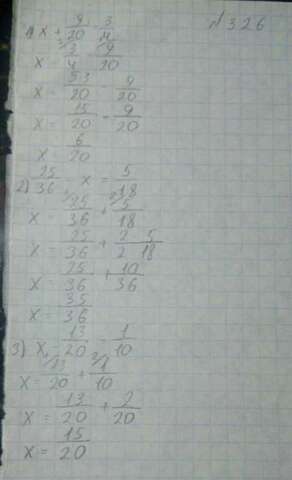 №326
1) x + 9/20 = 3/4
x = 3/4 - 9/20
x = 5·3/20 - 9/20
x = 15/20 - 9/20
x = 6/20
2) 25/36 , x = 5/18
x = 25/36 + 5/18
x = 25/36 + 2/2 5/18
x = 25/36 + 10/36
x = 35/36
3) x - 13/20 = 1/10
x = 13/20 + 1/10
x = 13/20 + 2/20
x = 15/20